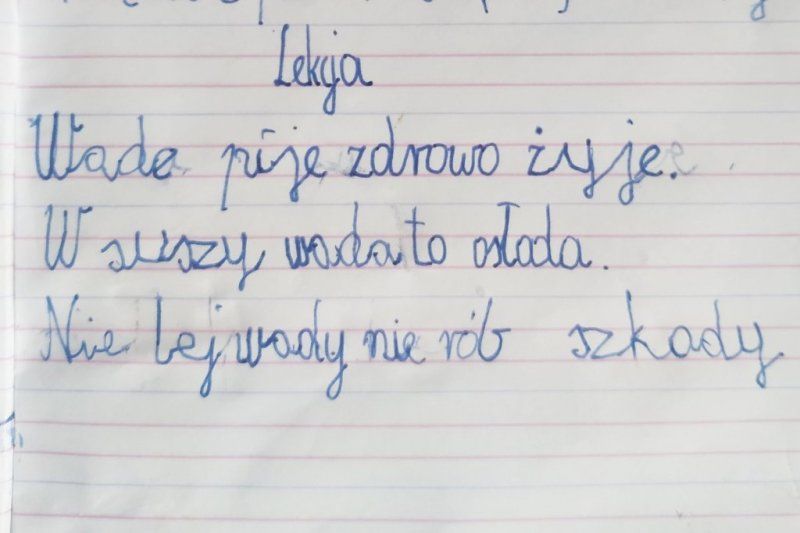 Lekja
Wode piję zdrowo żyję.
W suszy woda to osłoda.
Nie lej wody nie rób szkady